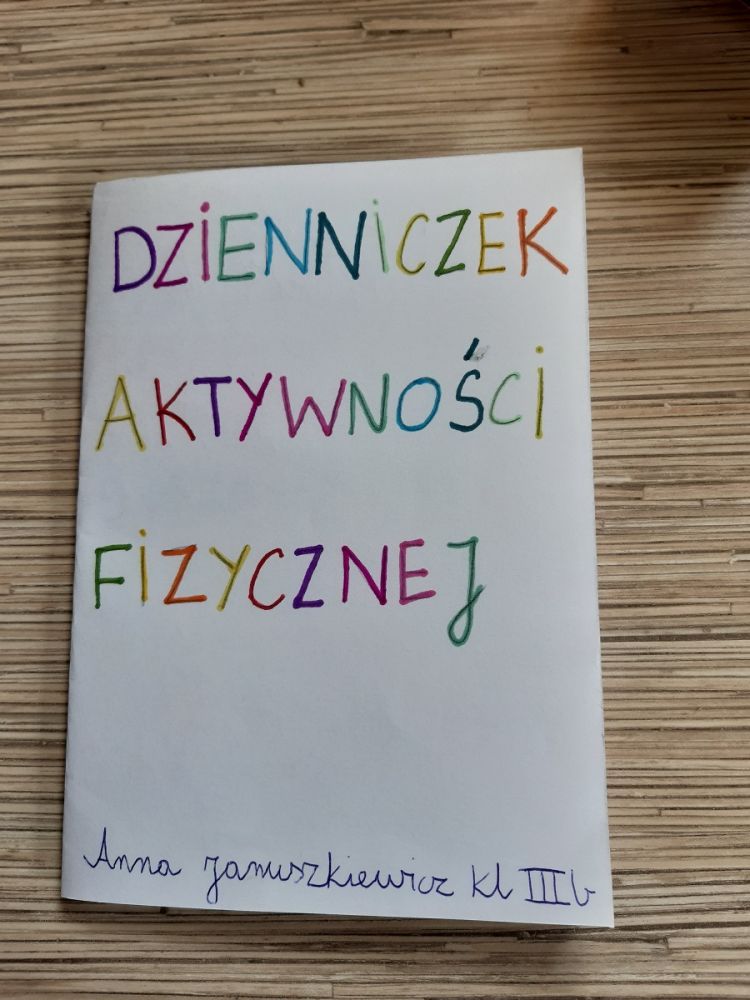 DZiENNiCZEK
AKTYWNOŚCi
FiZYCZNEJ
Anna Januszkiewicz kl III b